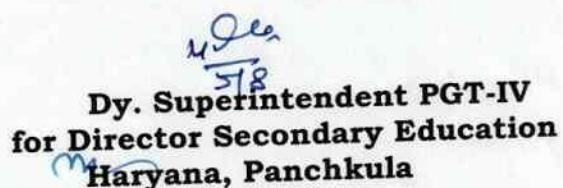 5/8
Dy. Superintendent PGT-IV
for Director Secondary Education
Haryana, Panchkula